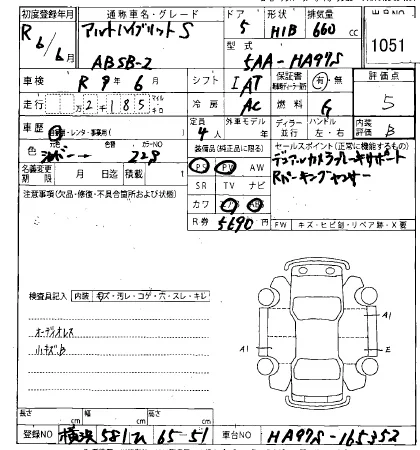 初度登録年月 通称車名・グレード ドア 形状 排気量 出品No
R 6/6 アルトハイブリット S 5 H/B 660 cc 1051
型式
ABSB-2 5AA-HA97S
車検 R 9年 6月 シフト I AT 保証書 有・無 評価点 5
走行 万 2千185 マイル キロ 冷房 AC 燃料 G
定員 4人 外車モデル ディーラー 並行 ハンドル 左・右 内装評価 B
車歴 自家用・レンタ・事業用
色 シルバー → 元色 色替 カラーNO Z2S
装備品(純正品に限る) セールスポイント(正常に機能するもの)
名義変更期限 月 日迄 積載 t PS PW AW デュアルカメラブレーキサポート
SR TV ナビ Rパーキングセンサー
注意事項(欠品・修復・不具合箇所および状態)
カワ エアB ABS
R券 5690 FW キズ・ヒビ割・リペア跡・X要
検査員記入 内装 キズ・汚レ・コゲ・穴・スレ・キレ
オーディオレス
小キズB
A1
A1 E
長さ cm 幅 cm 高さ cm
登録NO 横浜 581 ひ 65-51 車台NO HA97S-165352